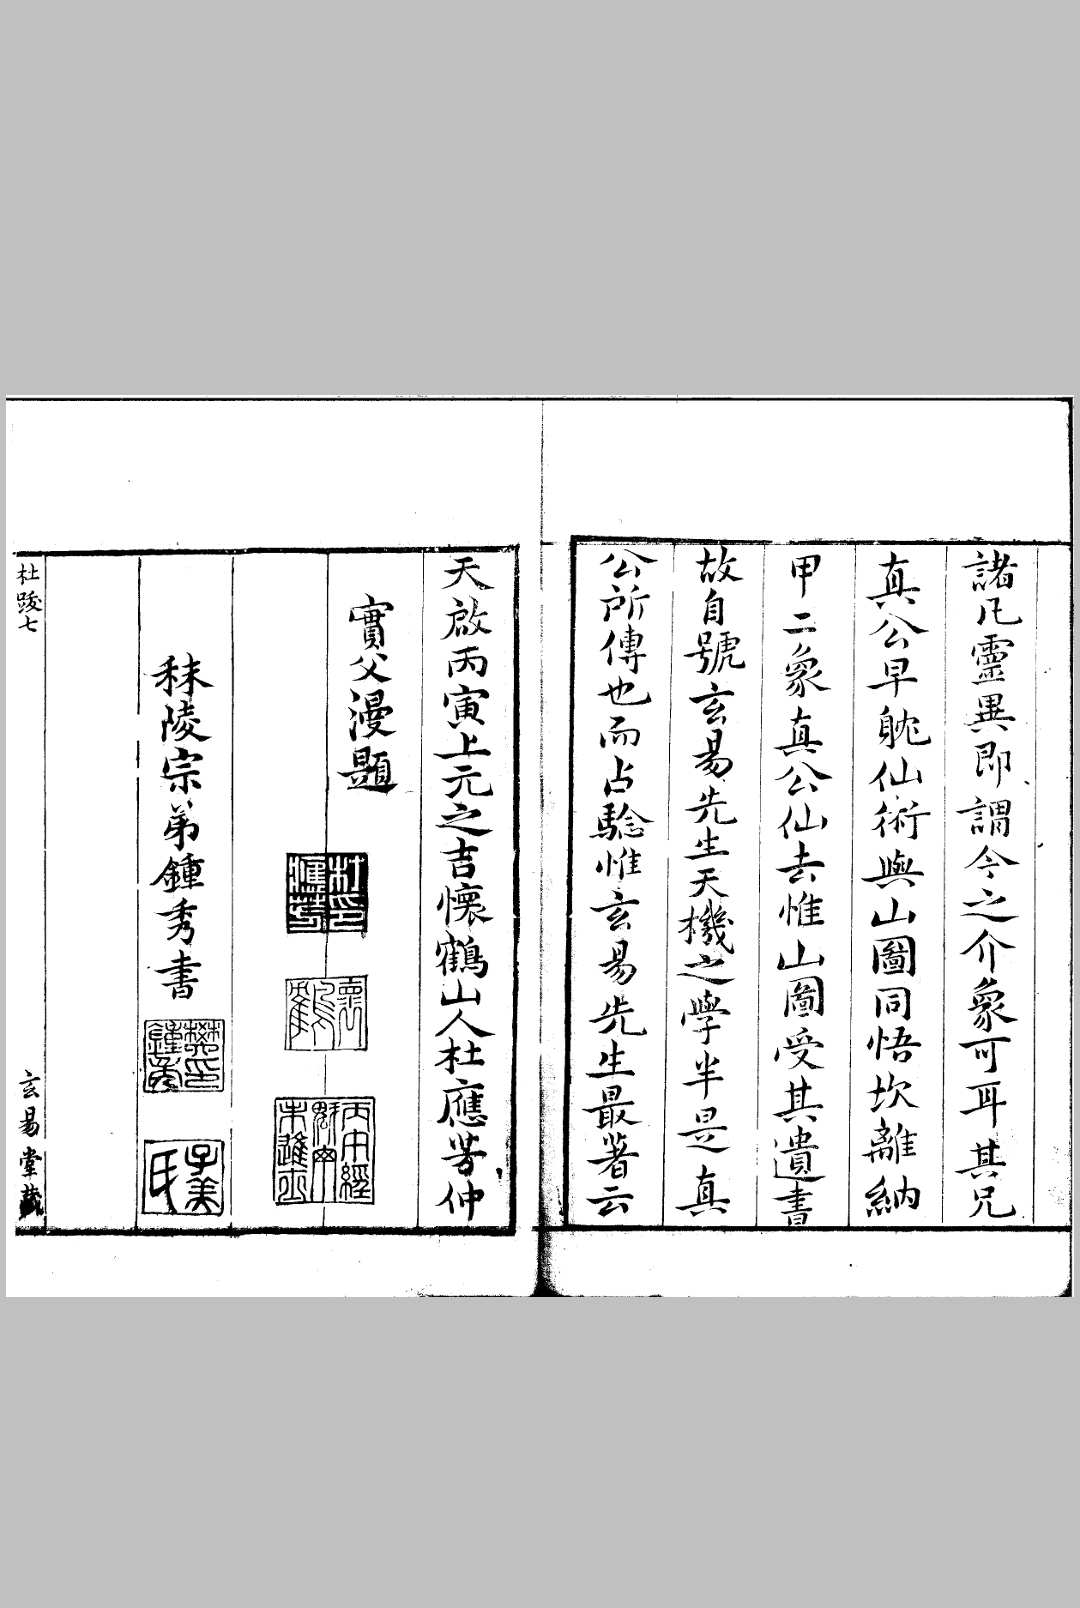 諸凡靈異即謂今之介象可耳其兄
真公早躭仙術與山圖同悟坎離納
甲二象真公仙去惟山圖受其遺書
故自號玄易先生天機之學半是真
公所傳也而占驗惟玄易先生最著云
天啟丙寅上元之吉懷鶴山人杜應芳仲
實父漫題
杜印應芳
懷鶴
秣陵宗弟鍾秀書
子美氏
杜踆七
玄易堂藏